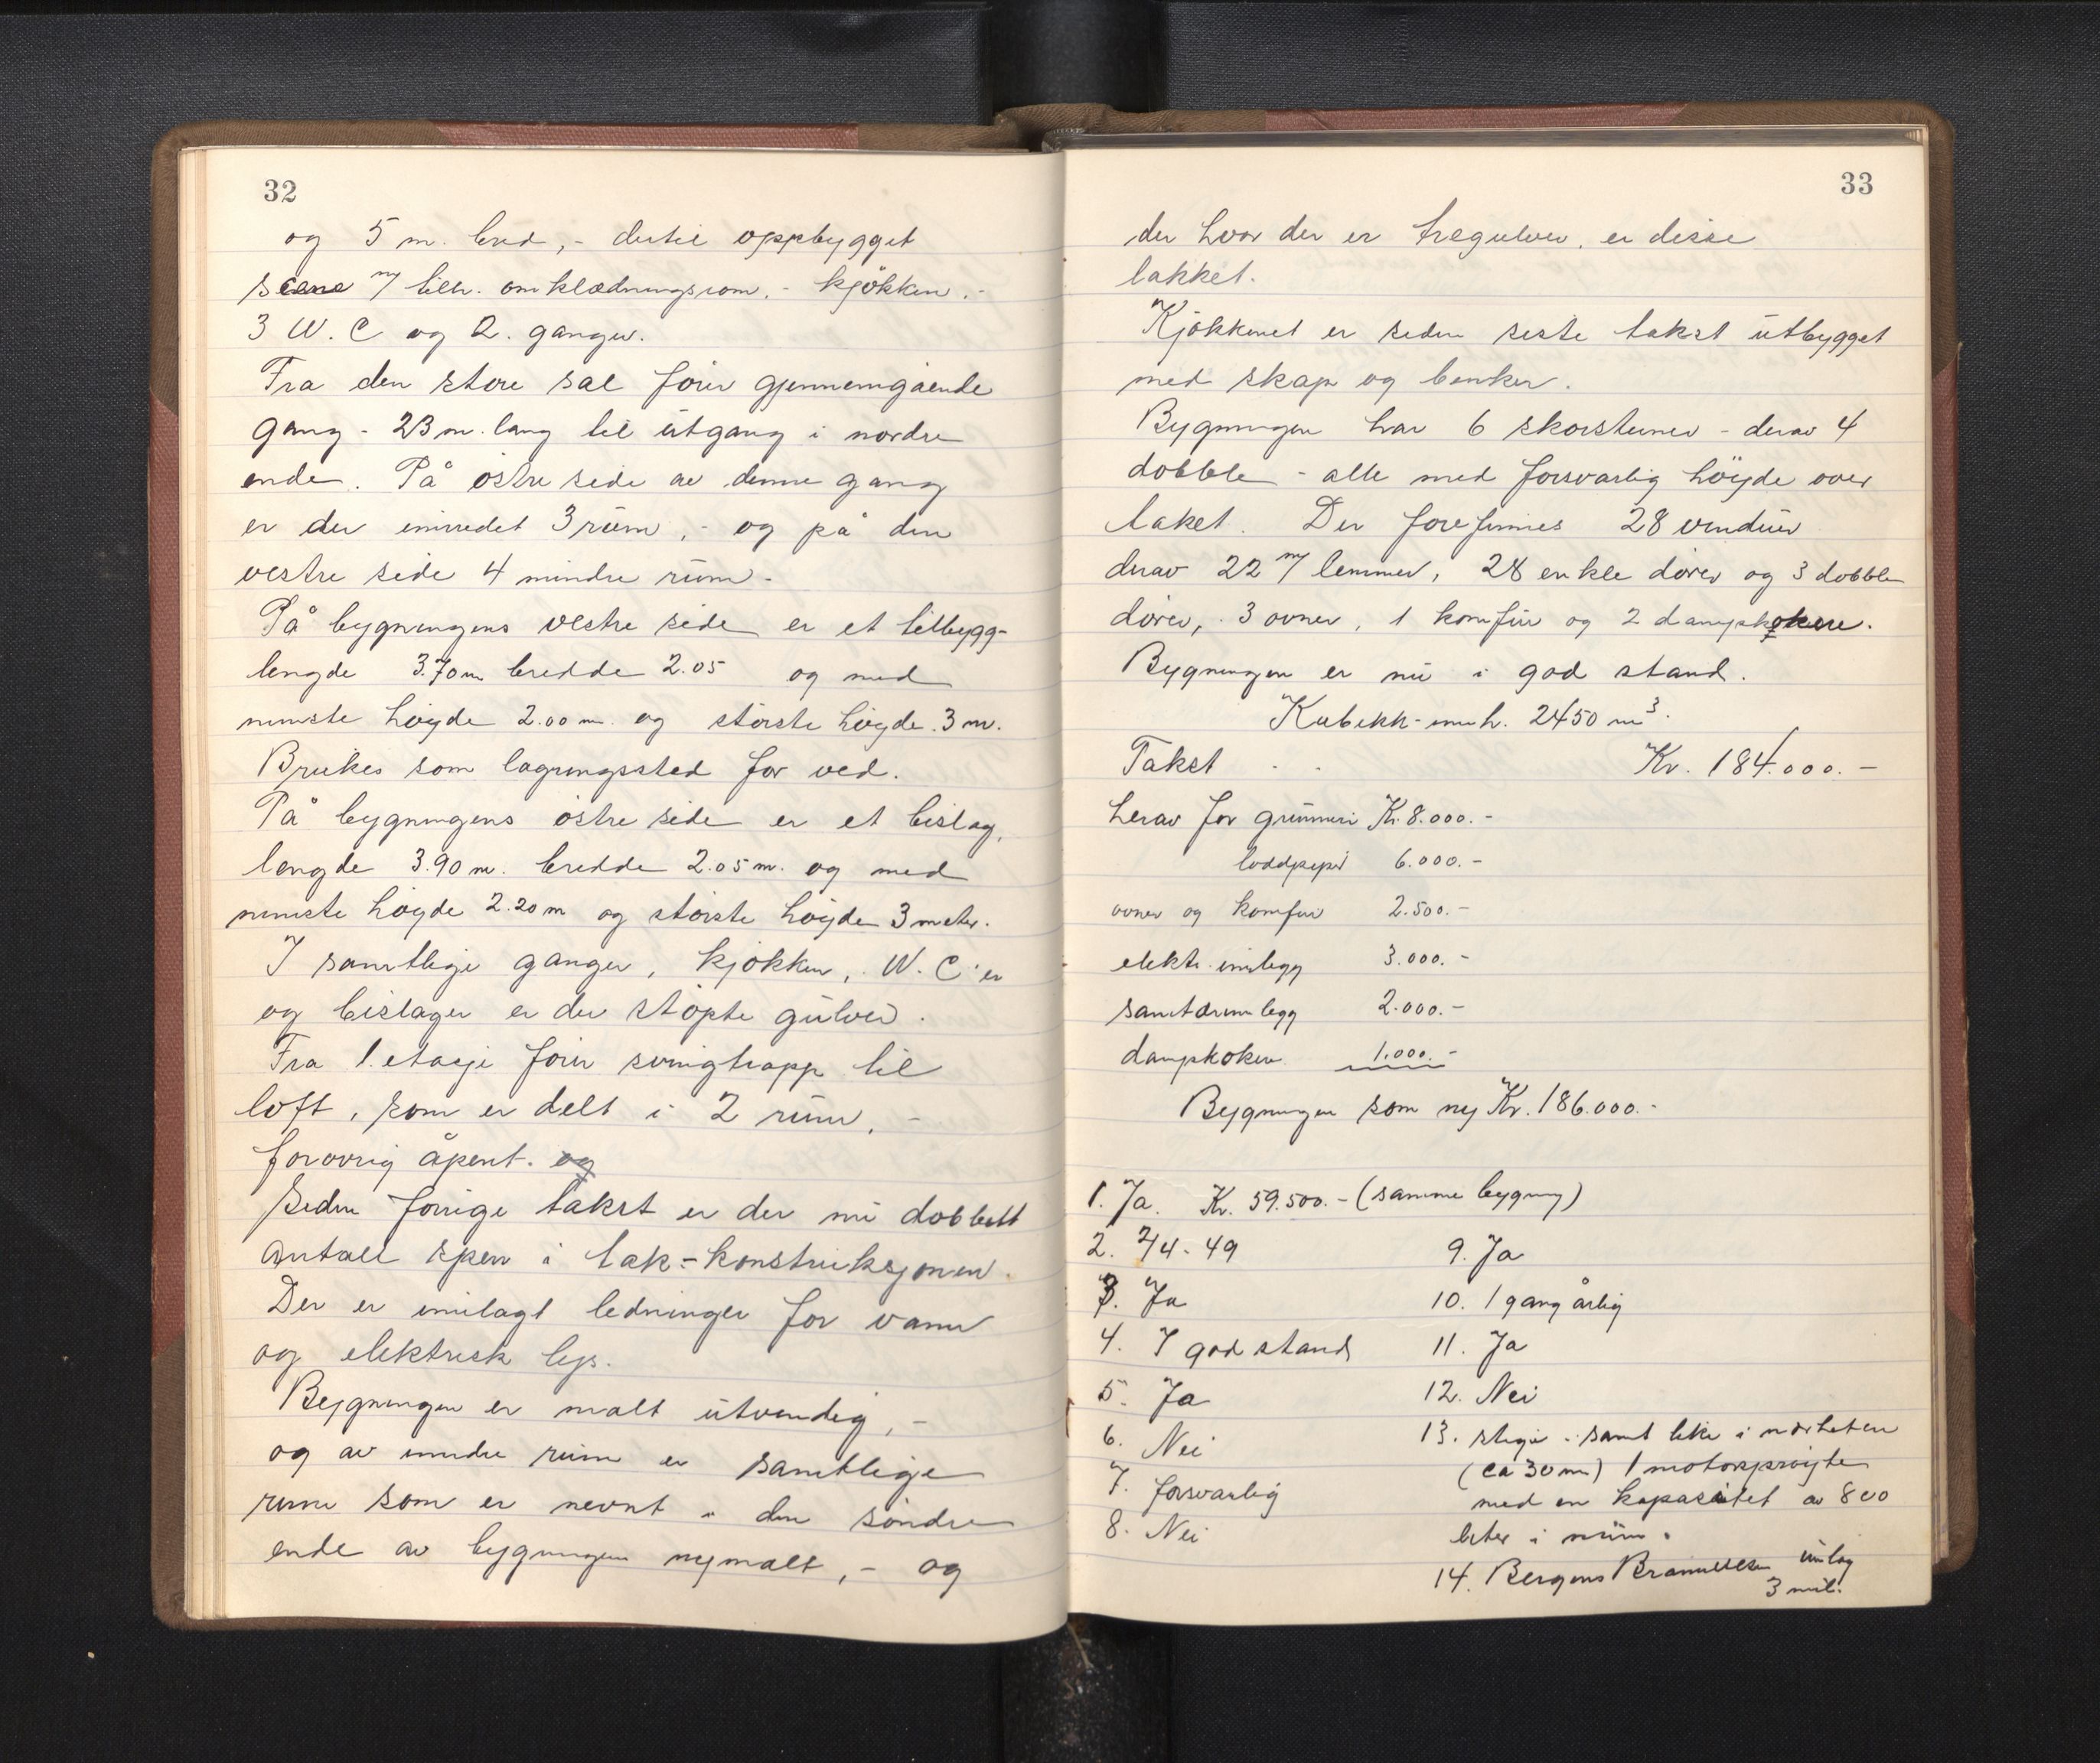 32
og 5 m. bred,- dertil oppbygget
scene m/ tilh. omklædningsrom.- kjøkken.-
3 W.C og 2. ganger.
Fra den store sal fører gjennemgående
gang - 23 m. lang til utgang i nordre
ende. På østre side av denne gang
er der innredet 3 rum,- og på den
vestre side 4 mindre rum.-
På bygningens vestre side er et tilbygg-
lengde 3.70 m bredde 2.05 og med
minste høyde 2.00 m. og største høyde 3 m.
Brukes som lagringssted for ved.
På bygningens østre side er et bislag,
lengde 3.90 m. bredde 2.05 m. og med
minste høyde 2.20 m og største høyde 3 meter.
I samtlige ganger, kjøkken, W.C'er
og bislager er der støpte gulver.
Fra 1. etasje fører svingtrapp til
loft, som er delt i 2 rum,-
forøvrig åpent. og
Siden forrige takst er der nu dobbelt
antall sperr i tak-konstruksjonen.
Der er innlagt ledninger for vann
og elektrisk lys.
Bygningen er malt utvendig,-
og av indre rum er samtlige
rum som er nevnt i den søndre
ende av bygningen nymalt,- og
33
der hvor der er tregulver, er disse
lakket.
Kjøkkenet er siden siste takst utbygget
med skap og benker.
Bygningen har 6 skorstener - derav 4
dobble - alle med forsvarlig høyde over
taket. Der forefinnes 28 vinduer
derav 22 m/ lemmer, 28 enkle dører og 3 dobble
dører, 3 ovner, 1 komfur og 2 dampkokere.
Bygningen er nu i god stand.
Kubikk-innh. 2450 m³.
Takst - - Kr. 184.000.-
herav for grunnmur Kr. 8.000.-
loddpiper 6.000.-
ovner og komfur 2.500.-
elektr. innlegg 3.000.-
sanitærinnlegg 2.000.-
dampkoker 1.000.-
Bygningen som ny Kr. 186.000.-
1. Ja. Kr. 59.500.- (samme bygning)
2. 2/4-49
3. Ja
4. I god stand
5. Ja
6. Nei
7. forsvarlig
8. Nei
9. Ja
10. 1 gang årlig
11. Ja
12. Nei
13. stige - samt like i nærheten
(ca 30 m) 1 motorsprøyte
med en kapasitet av 800
liter i min.
14. Bergens Brannvesen
3 mil.